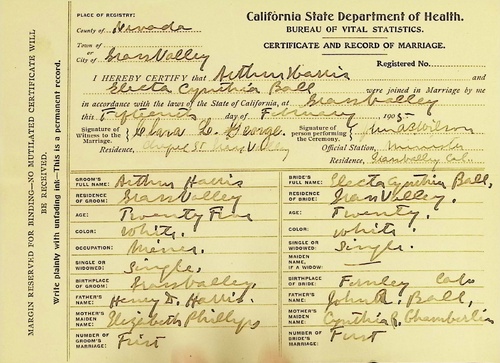 PLACE OF REGISTRY:
County of Nevada
Town of
or
City of Grass Valley
California State Department of Health.
BUREAU OF VITAL STATISTICS.
CERTIFICATE AND RECORD OF MARRIAGE.
Registered No.
I HEREBY CERTIFY that Arthur Harris and
Electa Cynthia Ball were joined in Marriage by me
in accordance with the laws of the State of California, at Grass Valley
this Fifteenth day of February 1905
Signature of Witness to the Marriage Clara L. George.
Residence, St. Grass Valley
Signature of person performing the Ceremony. Wilson
Official Station, Minister
Residence, Grass Valley Cal.
GROOM'S FULL NAME: Arthur Harris
RESIDENCE OF GROOM: Grass Valley
AGE: Twenty Five
COLOR: White.
OCCUPATION: Miner.
SINGLE OR WIDOWED: Single,
BIRTHPLACE OF GROOM: Grass Valley.
FATHER'S NAME: Henry D. Harris.
MOTHER'S MAIDEN NAME: Elizabeth Phillips
NUMBER OF GROOM'S MARRIAGE: First
BRIDE'S FULL NAME: Electa Cynthia Ball,
RESIDENCE OF BRIDE: Grass Valley.
AGE: Twenty.
COLOR: White.
SINGLE OR WIDOWED: Single.
MAIDEN NAME, IF A WIDOW:
BIRTHPLACE OF BRIDE: Cal
FATHER'S NAME: John R. Ball,
MOTHER'S MAIDEN NAME: Cynthia R. Chamberlin
NUMBER OF BRIDE'S MARRIAGE: First
MARGIN RESERVED FOR BINDING—NO MUTILATED CERTIFICATE WILL
BE RECEIVED.
Write plainly with unfading ink—This is a permanent record.